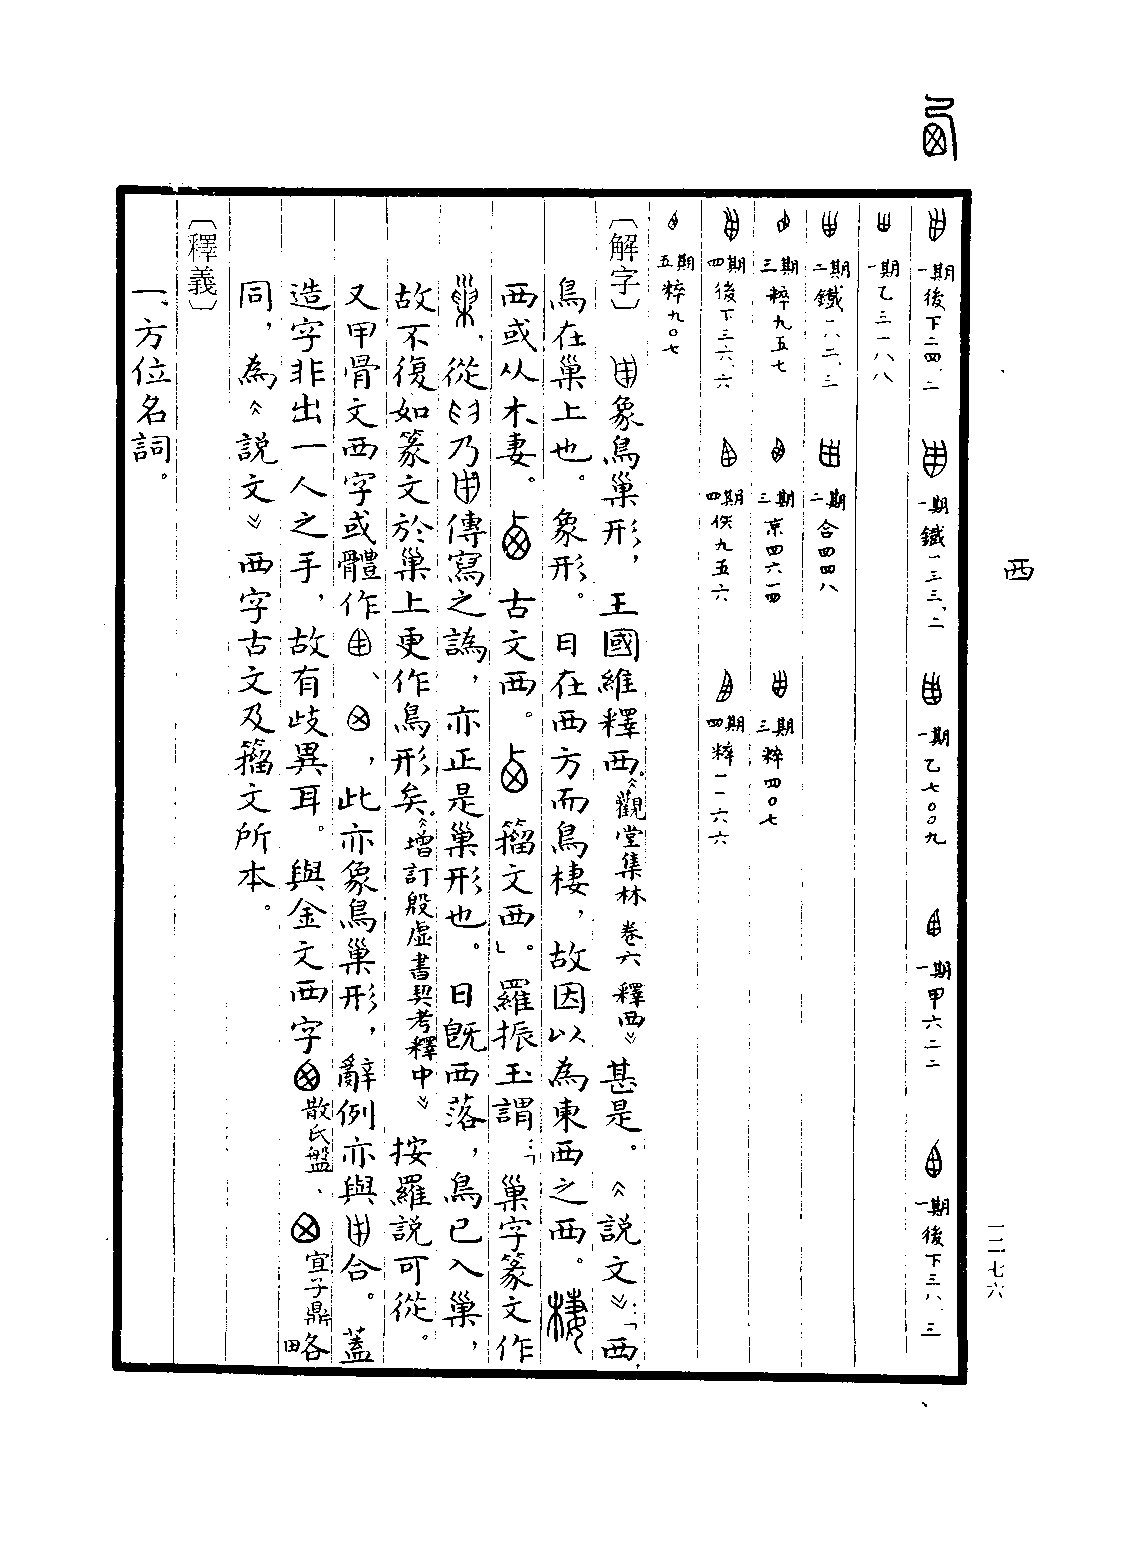 西
一二七六
一期後下二四、二
一期鐵一三三、二
一期乙七〇〇九
一期甲六二二
一期後下三八、三
一期乙三一八八
二期鐵一八二、三
二期合四四八
三期粹九五七
三期京四六一四
三期粹四〇七
四期後下三六、六
四期佚九五六
四期粹一一六六
五期粹九〇七
〔解字〕 象鳥巢形，王國維釋西《觀堂集林 卷六 釋西》。甚是。《說文》：「西，
鳥在巢上也。象形。日在西方而鳥棲，故因以為東西之西。棲
西或从木妻。 古文西。 籀文西」。羅振玉謂：「巢字篆文作
巢，從 乃 傳寫之譌，亦正是巢形也。日旣西落，鳥已入巢，
故不復如篆文於巢上更作鳥形矣。《增訂殷虛書契考釋中》 按羅說可從。
又甲骨文西字或體作 、 ，此亦象鳥巢形，辭例亦與 合。蓋
造字非出一人之手，故有歧異耳。與金文西字 散氏盤、 宜子鼎略
同，為《說文》西字古文及籀文所本。
〔釋義〕
一、方位名詞。